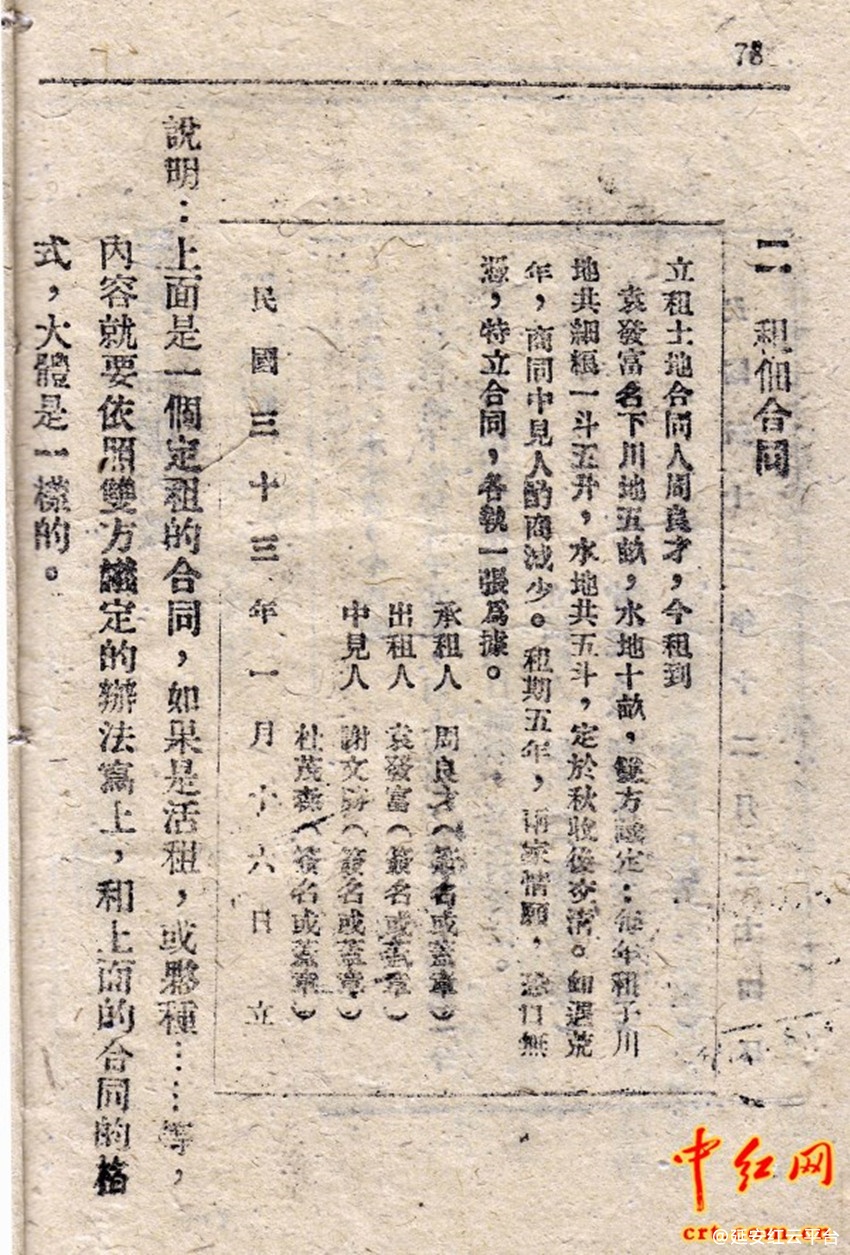 78
二 租佃合同
立租土地合同人周良才，今租到
袁發富名下川地五畝，水地十畝，雙方議定：每年租子川
地共細糧一斗五升，水地共五斗，定於秋收後交清。如遇荒
年，商同中見人酌商減少。租期五年，兩家情願，恐口無
憑，特立合同，各執一張爲據。
承租人 周良才（簽名或蓋章）
出租人 袁發富（簽名或蓋章）
中見人 謝文（簽名或蓋章）
杜茂森（簽名或蓋章）
民國三十三年一月十六日 立
說明：上面是一個定租的合同，如果是活租，或夥種……等，
內容就要依照雙方議定的辦法寫上，和上面的合同的格
式，大體是一樣的。
中红网
crt.com.cn
@延安红云平台